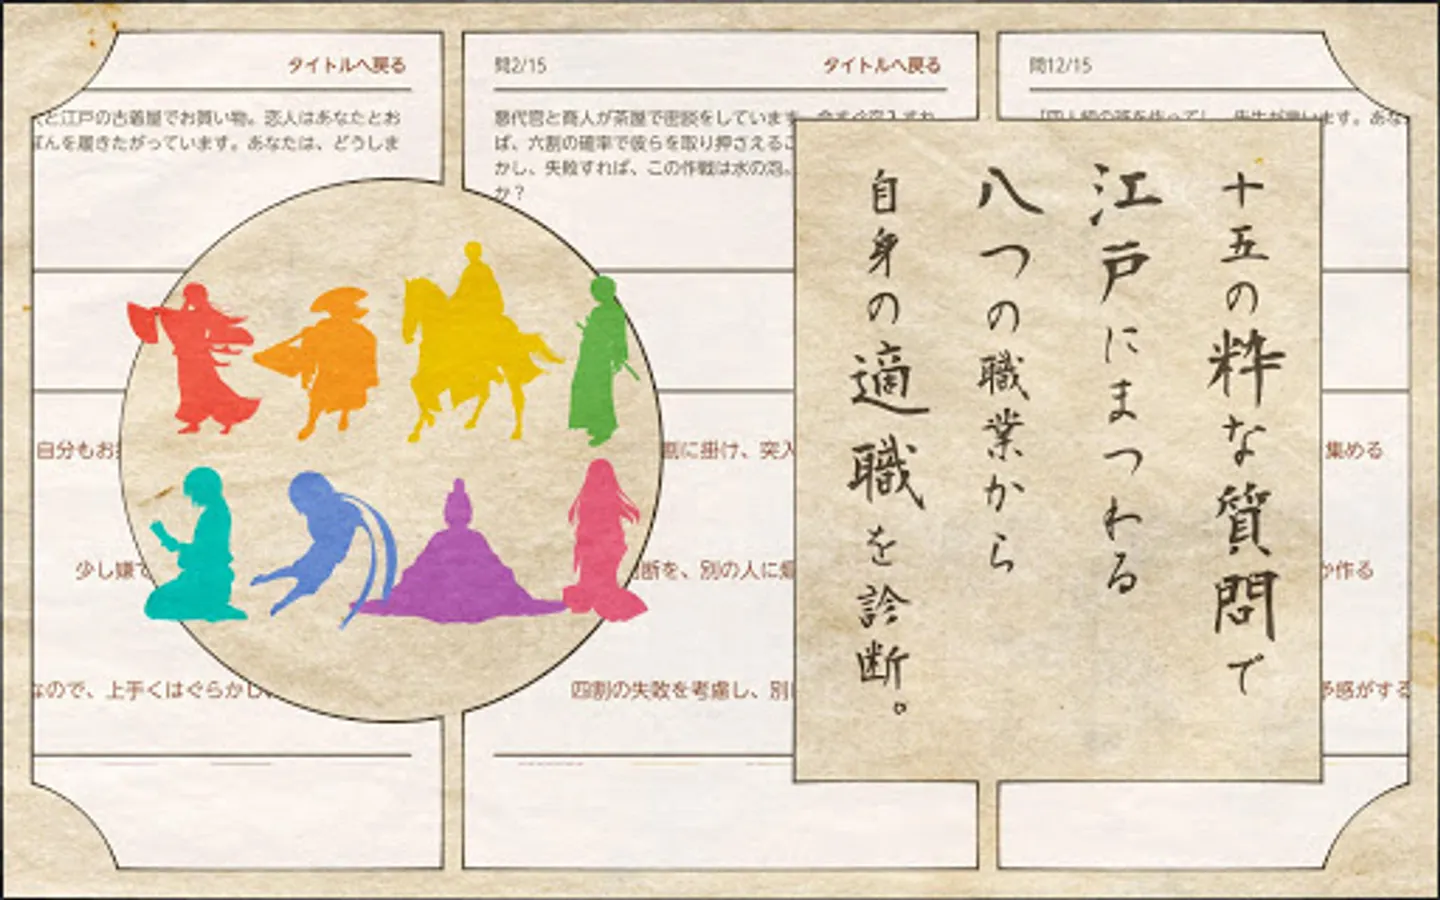 タイトルへ戻る
と江戸の古着屋でお買い物。恋人はあなたとお
ぽんを履きたがっています。あなたは、どうしま
自分もお
少し嫌
なので、上手くはぐらかし
問2/15
タイトルへ戻る
悪代官と商人が茶屋で密談をしています。今すぐ突入すれ
ば、六割の確率で彼らを取り押さえるこ
かし、失敗すれば、この作戦は水の泡。
か？
割に掛け、突入
断を、別の人に
四割の失敗を考慮し、別
問12/15
集める
作る
予感がする
十五の粋な質問で
江戸にまつわる
八つの職業から
自身の適職を診断。